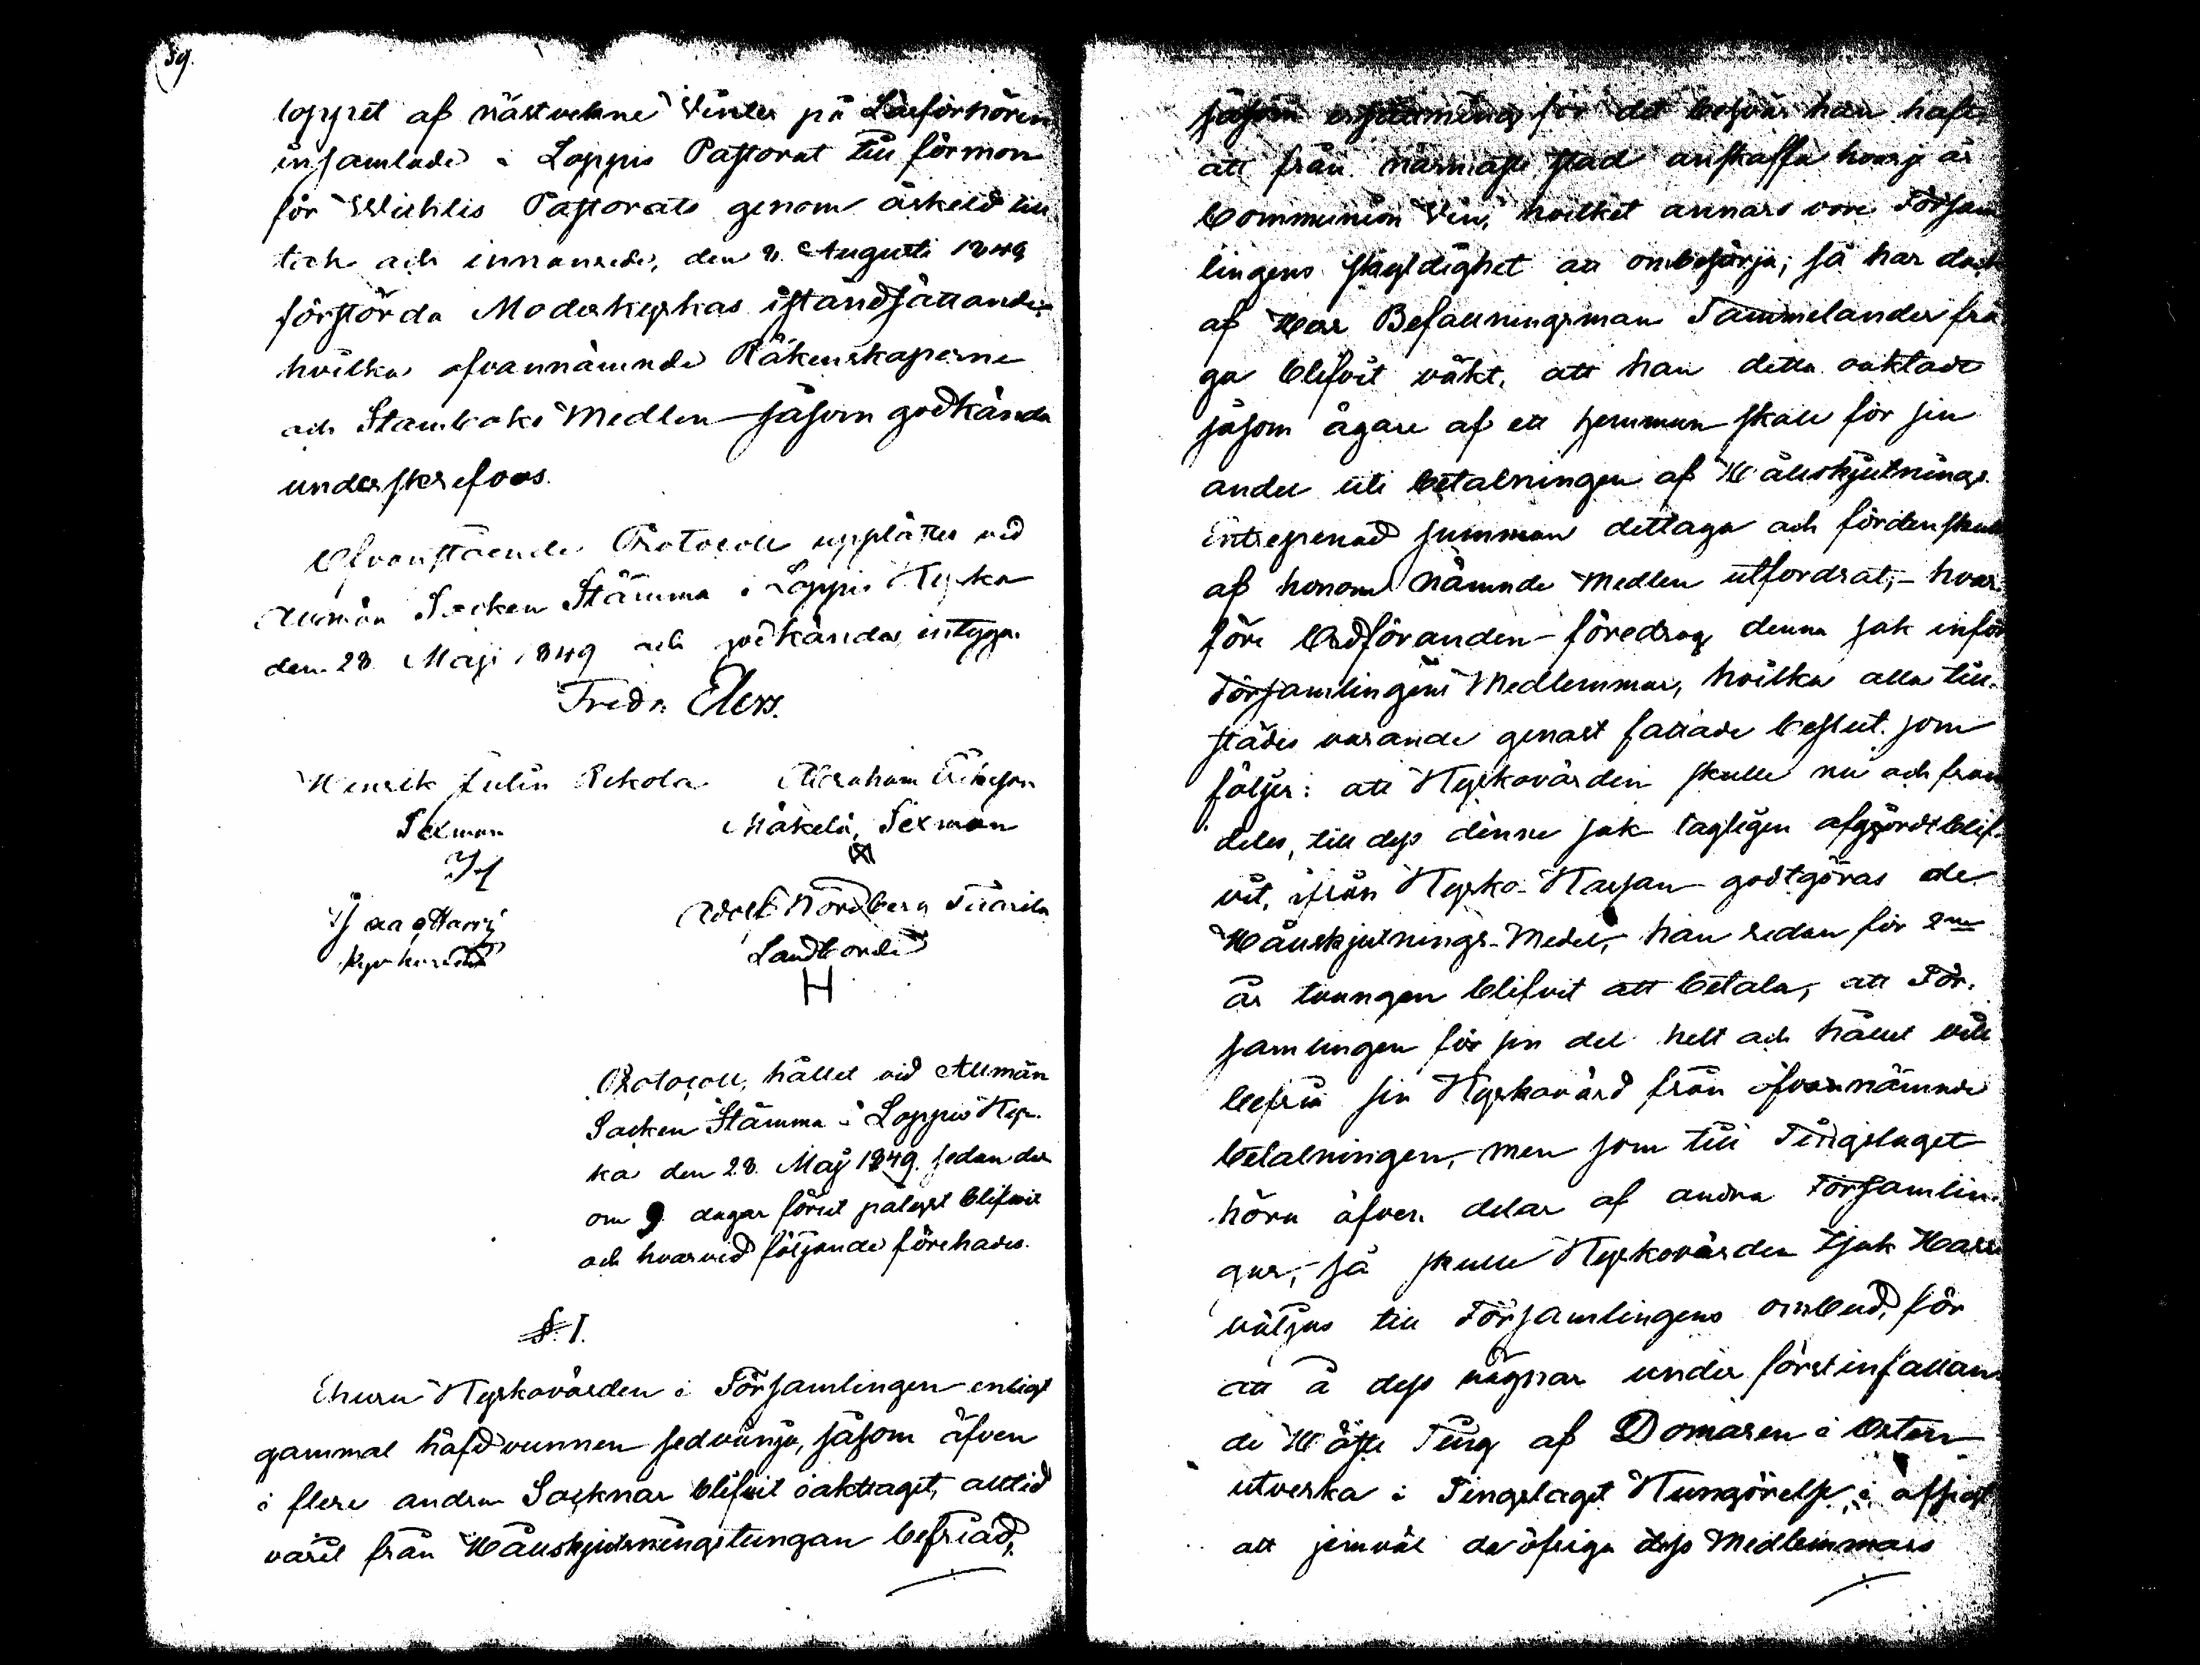 59.
loppet af nästvekne Vinter på Läseförhören
insamlade i Loppis Pastorat till förmon
för Wichtis Pastorats genom åskeld till
tak och innanrede, den 2. Augusti 1848
förstörda Moderkyrkas iståndsättande;
hvilka ofvannämnde Räkenskaperne
och Stamboks Medlen såsom godkända
underskrefvos.
Ofvanstående Protocoll upplästes vid
Allmän Socken Stämma i Loppis Kyrka
den 28. Maji 1849 och godkändes, intygar
Fredr. Elers.
Henrik Julin Rekola
Sexman
Abraham Eriksson
Mäkelä, Sexman
Isaac Harri
Kyrkovärd
Adolf Nordberg Tiärilä
Landbonde
H
Protocoll, hållet vid Allmän
Socken Stämma i Loppis Kyr-
ka den 28. Maji 1849. sedan der
om 9 dagar förut pålyst blifvit
och hvarvid följande förehades.
§. 1.
Ehuru Kyrkovärden i Församlingen enligt
gammal häfdvunnen sedvänja, såsom äfven
i flere andra Socknar blifvit iakttaget, alltid
varit från Hållskjutsningstungan befriad,
såsom ersättning för det besvär han haft,
att från närmaste stad anskaffa hvarje år
Communion Vin, hvilket annars vore Försam
lingens skyldighet att ombesörja; så har dock
af Herr Befallningsman Tammelander frå
ga blifvit väkt, att han detta oaktadt
såsom ägare af ett hemman skall för sin
andel uti betalningen af Hållskjutsnings
Entreprenad summan deltaga och fördenskull
af honom nämnde Medlen utfordrat;- hvar-
före Ordföranden föredrog denna sak inför
Församlingens Medlemmar, hvilka alla till-
städes varande genast fattade beslut som
följer: att Kyrkovärden skulle nu och fram
deles, till dess denne sak lagligen afgjordt blif-
vit, ifrån Kyrko-Kassan godtgöras de
Hållskjutsnings-Medel, han redan för 2ne
år tvungen blifvit att betala, att För-
samlingen för sin del helt och hållet vill
befria sin Kyrkovärd från ofvannämnde
betalningen, men som till Tingslaget
höra äfven delar af andra Församlin-
gar,- så skulle Kyrkovärden Isak Harri
väljas till Församlingens ombud, för
att å dess vägnar under först infallan
de Höste Ting af Domaren i Orten
utverka i Tingslaget Kungörelse, i afsigt
att jemväl de öfriga dess Medlemmars